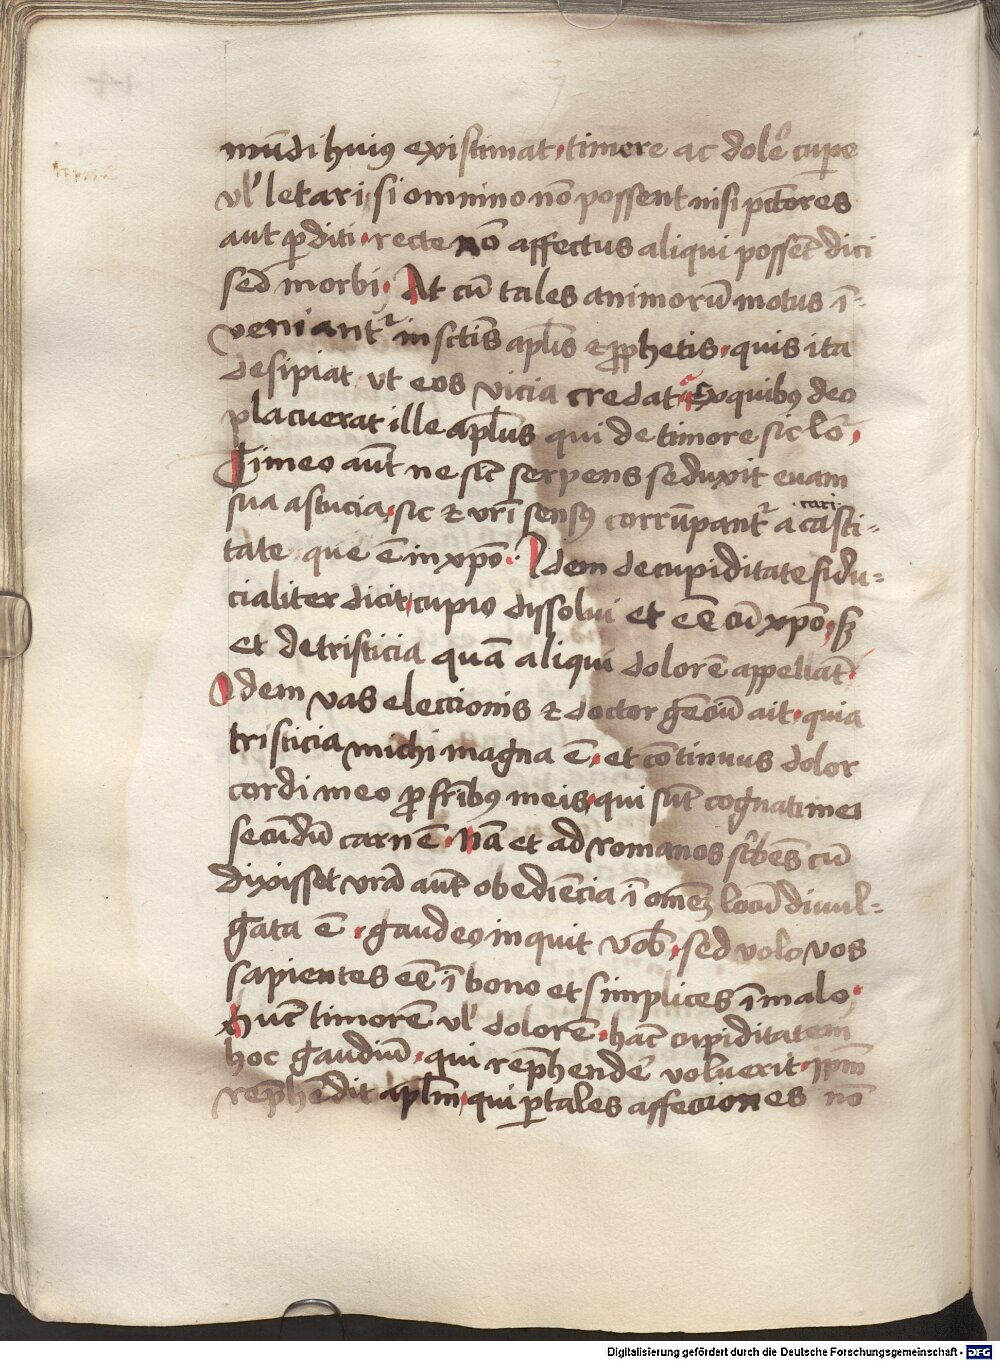 mūdi huiꝯ existimat · timere ac dolē cupe
vl' letari, si omnino nō possent nisi pctōres
aut ꝑditi · recte nō affectus aliqui possēt dici
sed morbi · At cū tales animorū motus ī-
veniantr in sctīs aplīs ⁊ ꝓphetis · quis ita
desipiat vt eos vicia credat · Ex quibꝯ deo
placuerat ille aplūs qui de timore sic lor̄ ·
Timeo aūt ne sic̄ serpens seduxit euam
sua astucia · sic ⁊ vrī sensꝯ corrūpantr a casti-
tate que ē in xpō · Idem de cupiditate fidu-
cialiter dicit, cupio dissolui et eē cū xpō · sꝫ
et de tristicia quā aliqui dolorē appellāt ·
Idem vas eleccionis ⁊ doctor gēciū ait · quia
tristicia michi magna ē · et cōtinuus dolor
cordi meo ꝓ frībꝯ meis · qui sūt cognati mei
secūdū carnē · Nā et ad romanos scībēs cū
dixisset vrā aūt obediēcia ī omēꝫ locū diuul-
gata ē · gaudeo inquit vob̄ · sed volo vos
sapientes eē ī bono et simplices ī malo ·
Hūc timorē vl' dolorē · hāc cupiditatem
hoc gaudiū · qui rep̄hendē voluerit · ip̄m
rep̄hēdit aplm̄, qui ꝑ tales affecciones nō
Digitalisierung gefördert durch die Deutsche Forschungsgemeinschaft - DFG